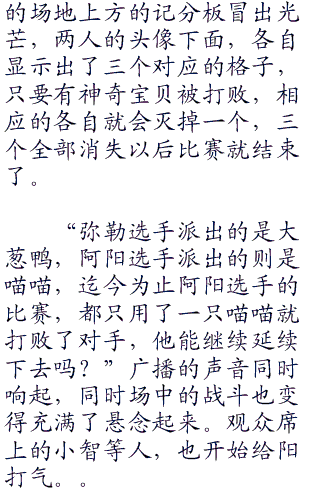 的场地上方的记分板冒出光
芒，两人的头像下面，各自
显示出了三个对应的格子，
只要有神奇宝贝被打败，相
应的各自就会灭掉一个，三
个全部消失以后比赛就结束
了。
“弥勒选手派出的是大
葱鸭，阿阳选手派出的则是
喵喵，迄今为止阿阳选手的
比赛，都只用了一只喵喵就
打败了对手，他能继续延续
下去吗？”广播的声音同时
响起，同时场中的战斗也变
得充满了悬念起来。观众席
上的小智等人，也开始给阳
打气。。